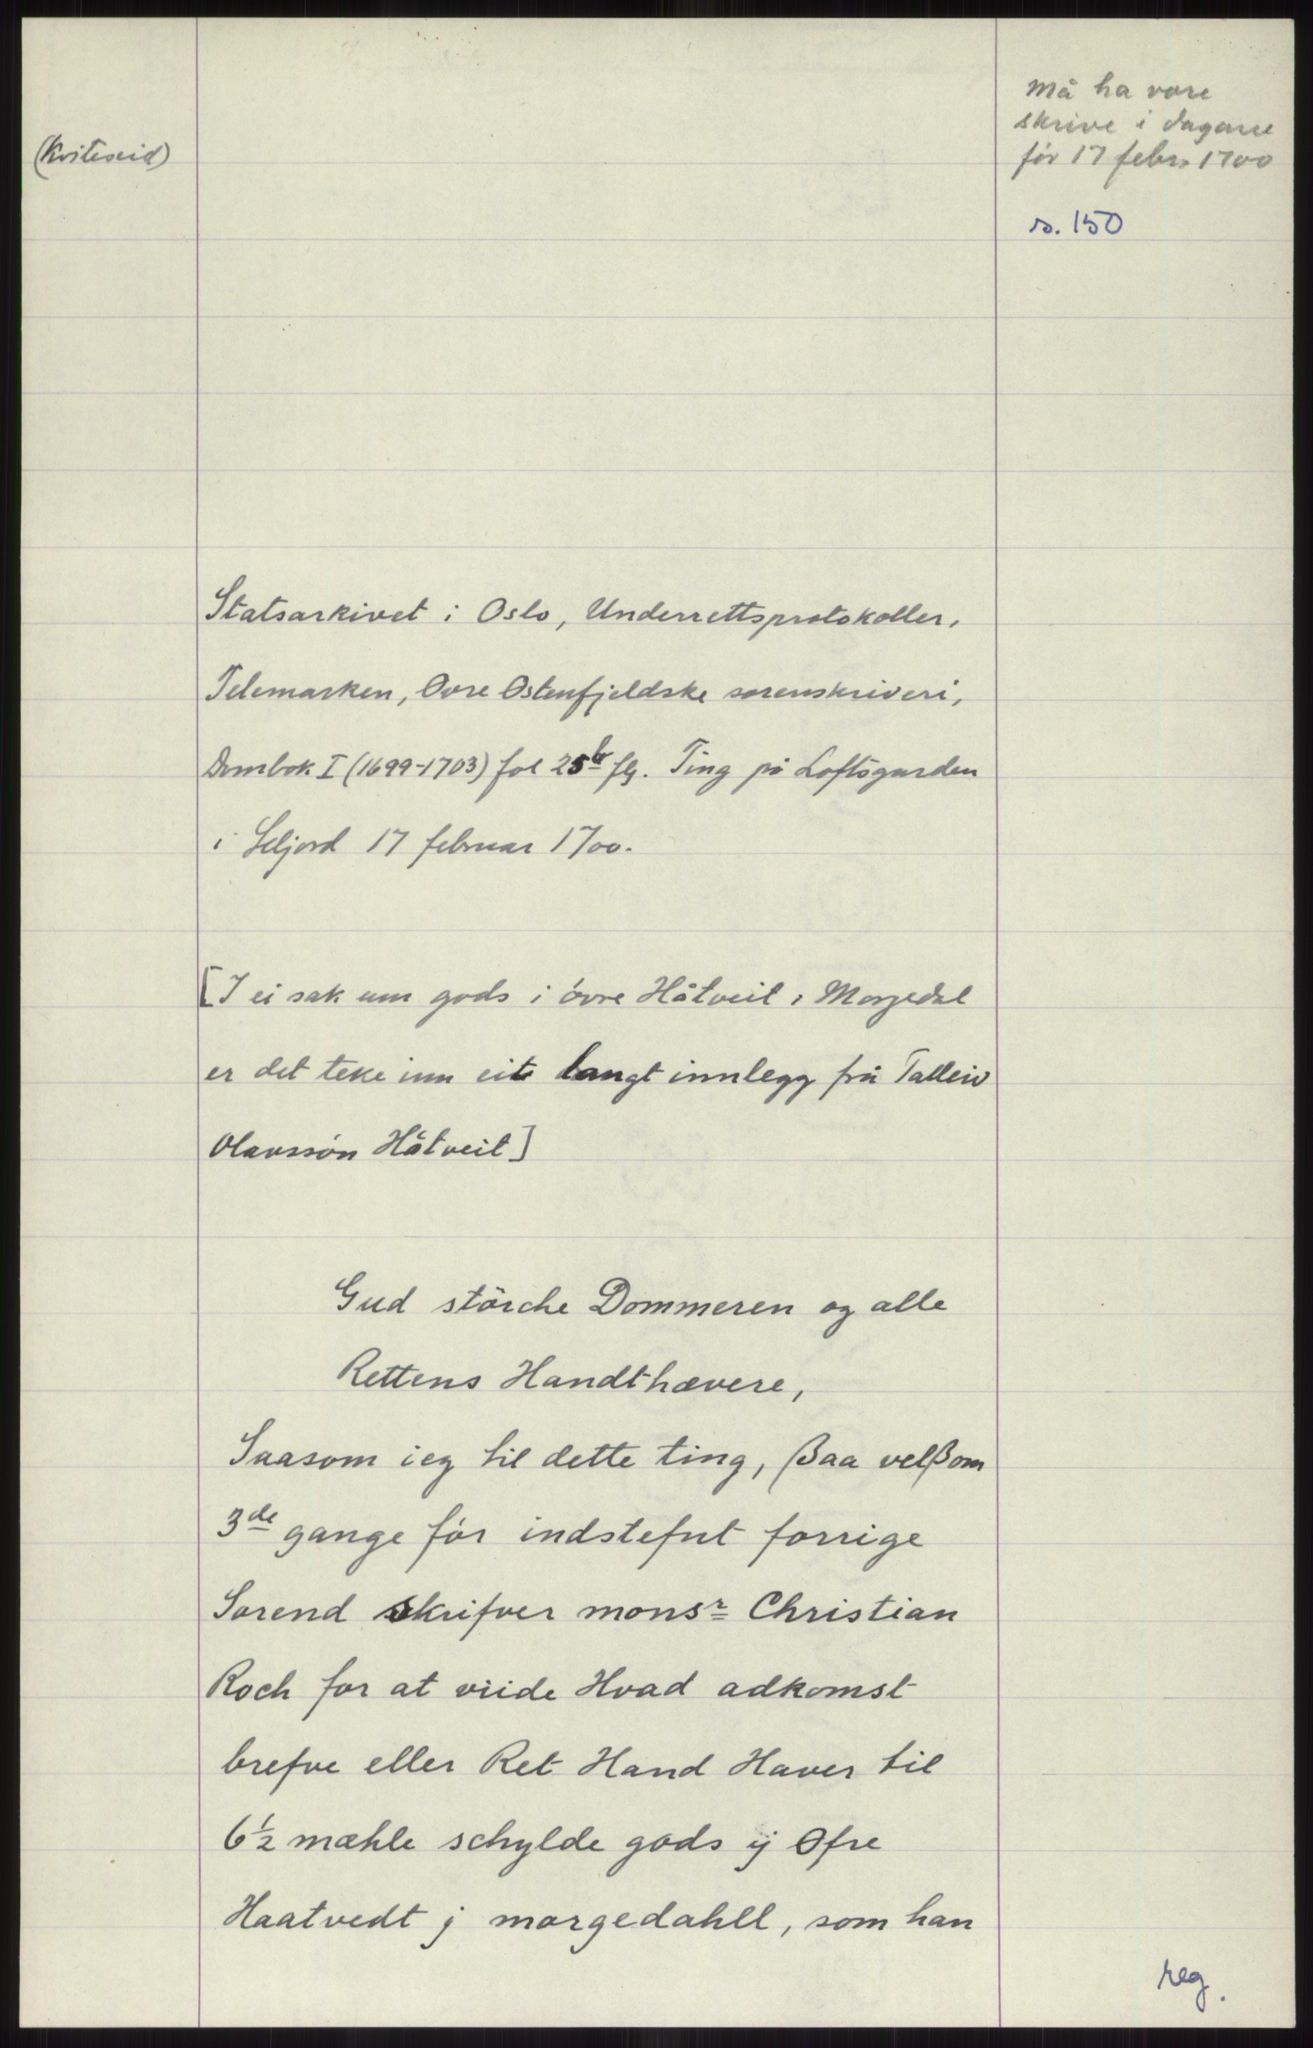 (Kviteseid)
Må ha vore
skrive i dagane
för 17 febr. 1700
s. 150
Statsarkivet i Oslo, Underrettsprotokoller,
Telemarken, Övre Østenfjeldske sorenskriveri,
Dombok I (1699-1703) fol 25b flg. Ting på Loftsgarden
i Seljord 17 februar 1700.
[I ei sak um gods i övre Håtveit i Morgedal
er det teke inn eit langt innlegg frå Talleiv
Olavssön Håtveit]
Gud störche Dommeren og alle
Rettens Handthævere,
Saasom ieg til dette ting, ßaa velßom
3de gange för indstefnt forrige
Sorend skrifver monsr Christian
Roch for at viide Hvad adkomst
brefve eller Ret Hand Haver til
6½ mæhle schylde gods ij Øfre
Haatvedt j morgedahll, som han
reg.